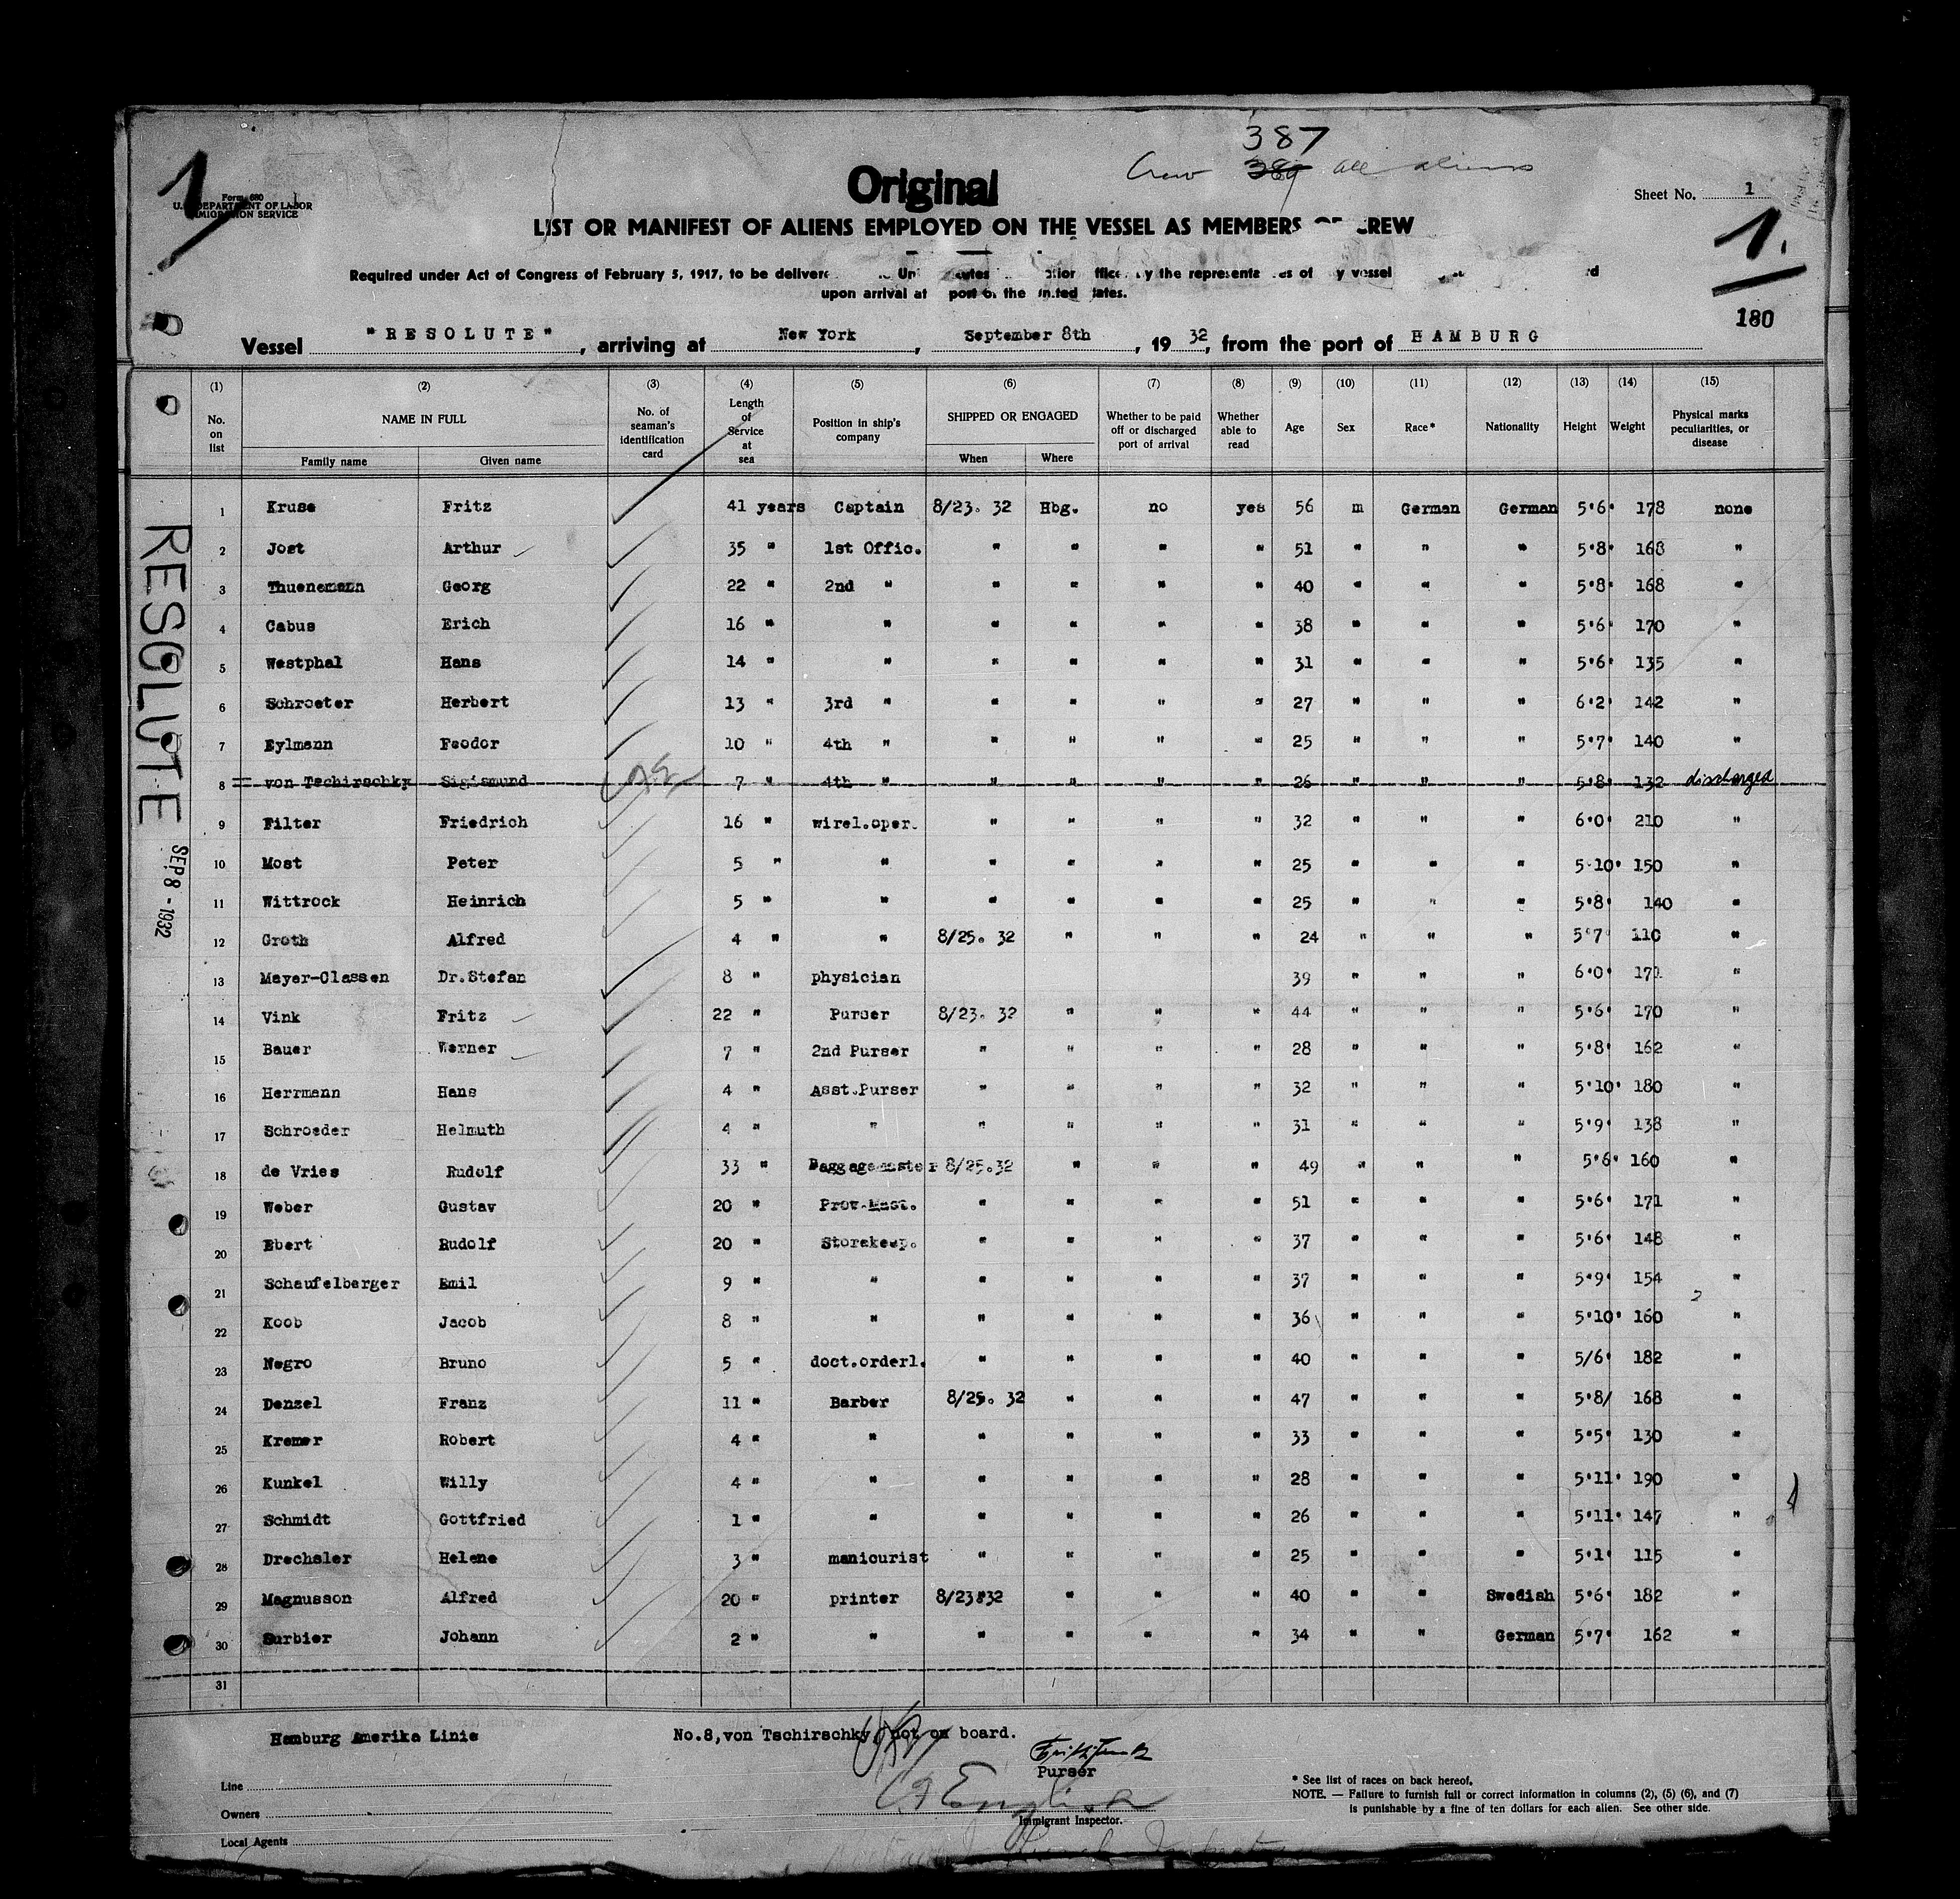 387
Crew 389 all aliens
1
Form 680
U.S. DEPARTMENT OF LABOR
IMMIGRATION SERVICE
Original
Sheet No. 1
LIST OR MANIFEST OF ALIENS EMPLOYED ON THE VESSEL AS MEMBERS OF CREW
1.
Required under Act of Congress of February 5, 1917, to be delivere the representa es of y vessel
upon arrival at port of the United States.
180
Vessel "RESOLUTE", arriving at New York, September 8th, 1932, from the port of HAMBURG
(1) (2) (3) (4) (5) (6) (7) (8) (9) (10) (11) (12) (13) (14) (15)
No. on list NAME IN FULL No. of seaman's identification card Length of Service at sea Position in ship's company SHIPPED OR ENGAGED Whether to be paid off or discharged port of arrival Whether able to read Age Sex Race* Nationality Height Weight Physical marks peculiarities, or disease
Family name Given name When Where
1 Kruse Fritz 41 years Captain 8/23. 32 Hbg. no yes 56 m German German 5'6' 178 none
2 Jost Arthur 35 " 1st Offic. " " " " 51 " " " 5'8' 168 "
3 Thuenemann Georg 22 " 2nd " " " " " 40 " " " 5'8' 168 "
4 Cabus Erich 16 " " " " " " 38 " " " 5'6' 170 "
5 Westphal Hans 14 " " " " " " 31 " " " 5'6' 135 "
6 Schroeter Herbert 13 " 3rd " " " " " 27 " " " 6'2' 142 "
7 Eylmann Feodor 10 " 4th " " " " " 25 " " " 5'7' 140 "
8 von Tschirschky Sigismund 7 " 4th " " " " " 26 " " " 5'8' 132 discharged
9 Filter Friedrich 16 " wirel.oper. " " " " 32 " " " 6'0' 210 "
10 Most Peter 5 " " " " " " 25 " " " 5'10' 150 "
11 Wittrock Heinrich 5 " " " " " " 25 " " " 5'8' 140 "
12 Groth Alfred 4 " " 8/25. 32 " " " 24 " " " 5'7' 110 "
13 Mayer-Classen Dr.Stefan 8 " physician 39 " " " 6'0' 172 "
14 Vink Fritz 22 " Purser 8/23. 32 " " " 44 " " " 5'6' 170 "
15 Bauer Werner 7 " 2nd Purser " " " " 28 " " " 5'8' 162 "
16 Herrmann Hans 4 " Asst.Purser " " " " 32 " " " 5'10' 180 "
17 Schroeder Helmuth 4 " " " " " " 31 " " " 5'9' 138 "
18 de Vries Rudolf 33 " Baggagemaster 8/25.32 " " " 49 " " " 5'6' 160 "
19 Weber Gustav 20 " Prov.Mast. " " " " 51 " " " 5'6' 171 "
20 Ebert Rudolf 20 " Storekeep. " " " " 37 " " " 5'6' 148 "
21 Schaufelberger Emil 9 " " " " " " 37 " " " 5'9' 154 "
22 Koob Jacob 8 " " " " " " 36 " " " 5'10' 160 "
23 Negro Bruno 5 " doct.orderl. " " " " 40 " " " 5/6' 182 "
24 Denzel Franz 11 " Barber 8/25. 32 " " " 47 " " " 5'8/ 168 "
25 Kremer Robert 4 " " " " " " 33 " " " 5'5' 130 "
26 Kunkel Willy 4 " " " " " " 28 " " " 5'11' 190 "
27 Schmidt Gottfried 1 " " " " " " 26 " " " 5'11' 147 "
28 Drechsler Helene 3 " manicurist " " " " 25 " " " 5'1' 115 "
29 Magnusson Alfred 20 " printer 8/23.32 " " " 40 " " Swedish 5'6' 182 "
30 Surbier Johann 2 " " " " " " 34 " " German 5'7' 162 "
31
RESOLUTE SEP 8 - 1932
Hamburg Amerika Linie No.8,von Tschirschky, not on board.
Purser
Line
Owners
Local Agents
English
Immigrant Inspector.
* See list of races on back hereof.
NOTE. — Failure to furnish full or correct information in columns (2), (5) (6), and (7)
is punishable by a fine of ten dollars for each alien. See other side.